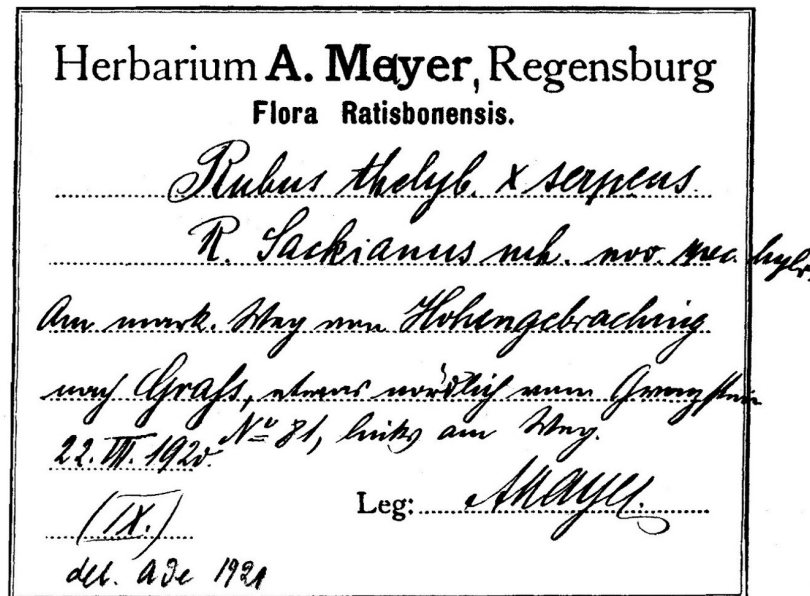 Herbarium A. Mayer, Regensburg
Flora Ratisbonensis.
Rubus thelyb. x serpens
R. Sackianus mh. nov. spec. hybr.
Am mark. Weg von Hohengebraching
nach Graß, etwas nördlich vom Grenzstein
22. VII. 1920 No 81, links am Weg.
Leg: AMayer.
(IX.)
det. Ade 1921